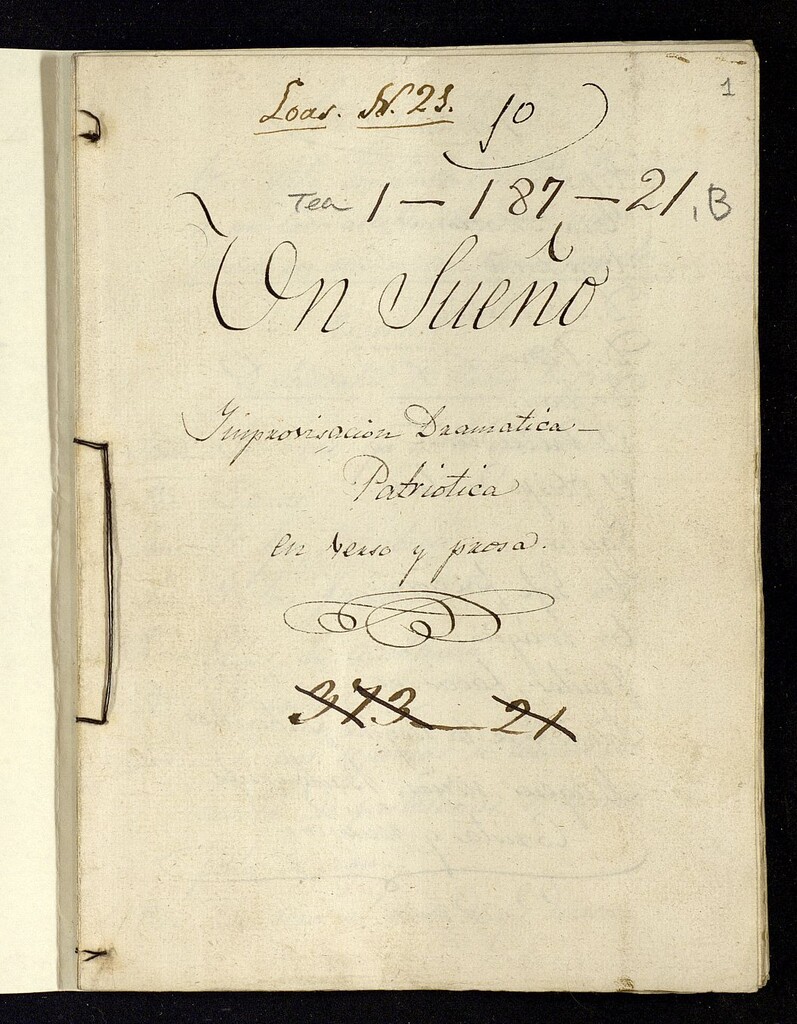 1
Loas. N. 21.
10
Tea 1-187-21, B
Un Sueño
Improvisacion Dramatica-
Patriotica
en verso y prosa.
373-21